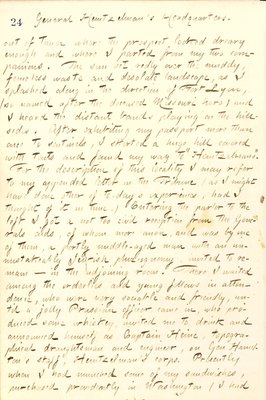 24 General Heintzelman's Headquarters.
out of Town where the prospect looked dreary
enough and where I parted from my two com-
panions. The sun set redly over the muddy,
fenceless waste and desolate landscape, as I
splashed along in the direction of Fort Lyon,
(so named after the deceased Missouri hero) and
I heard the distant bands playing on the hill-
sides. After exhibiting my passport more than
once to sentinels, I ascended a huge hill covered
with tents and found my way to Heintzelman's.
For the description of this locality I may refer
to my appended letter in the Tribune (as I might
have done for to-day's experience, had I
thought of it in time.) Entering the parlor to the
left I got a not too civil reception from the Gene-
ral's aids, of whom more anon, and was by one
of them, a portly middle-aged man with an un-
mistakably Jewish physiognomy, invited to re-
main — in the adjoining room. There I waited
among the orderlies and young fellows in atten-
dance, who were very sociable and friendly, un-
til a jolly Prussian officer came in, who pro-
duced some whiskey, invited me to drink and
announced himself as Captain Heine, topogra-
phical draughtsman and engineer, on Gen. Hamil-
ton's staff, Heintzelman's corps. Presently
when I had munched some of my sandwiches,
purchased providently in Washington, I had